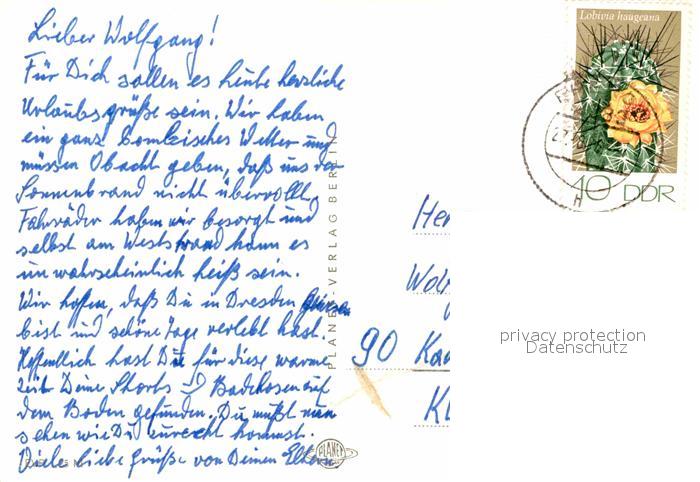 Lieber Wolfgang!
Für Dich sollen es heute herzliche
Urlaubsgrüße sein. Wir haben
ein ganz tom tisches Wetter und
müssen Obacht geben, daß uns der
Sonnenbrand nicht übervollt.
Fahrräder haben wir besorgt und
selbst am Weststrand kann es
unwahrscheinlich heiß sein.
Wir hoffen, daß Du in Dresden gewesen
bist und schöne Tage verlebt hast.
Hoffentlich hast Du für diese warme
Zeit Deine Shorts u Badehosen auf
dem Boden gefunden. Du mußt nun
sehen wie Du zurecht kommst.
Viele liebe Grüße von Deinen Eltern
PLANET-VERLAG BERLIN
PLANET
Lobivia haageana
10 DDR
Her
Wolf
90 Ka
Kl
privacy protection
Datenschutz